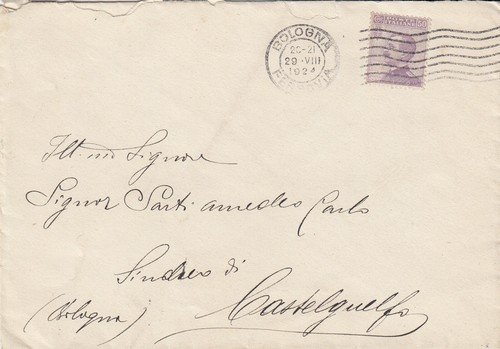 BOLOGNA
20-21
29·VIII
1924
FERROVIA
Ill.mo Signore
Signor Sarti amedeo Carlo
Sindaco di
Castelguelfo
(Bologna)